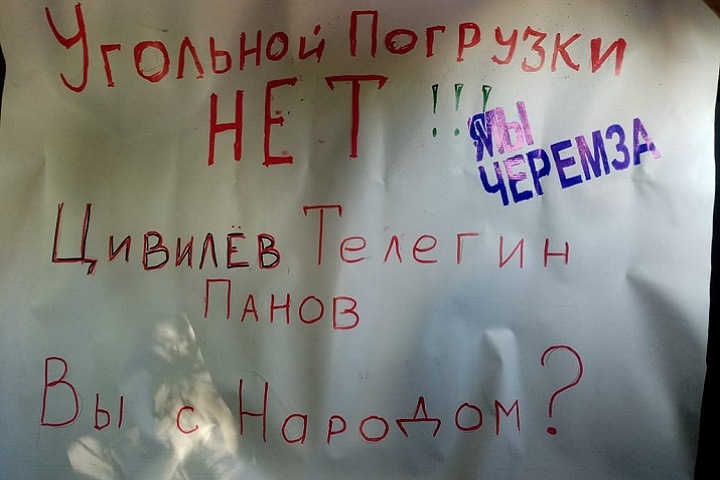 Угольной Погрузки
НЕТ !!!
ЯМЫ
ЧЕРЕМЗА
Цивилёв Телегин
Панов
Вы с Народом?